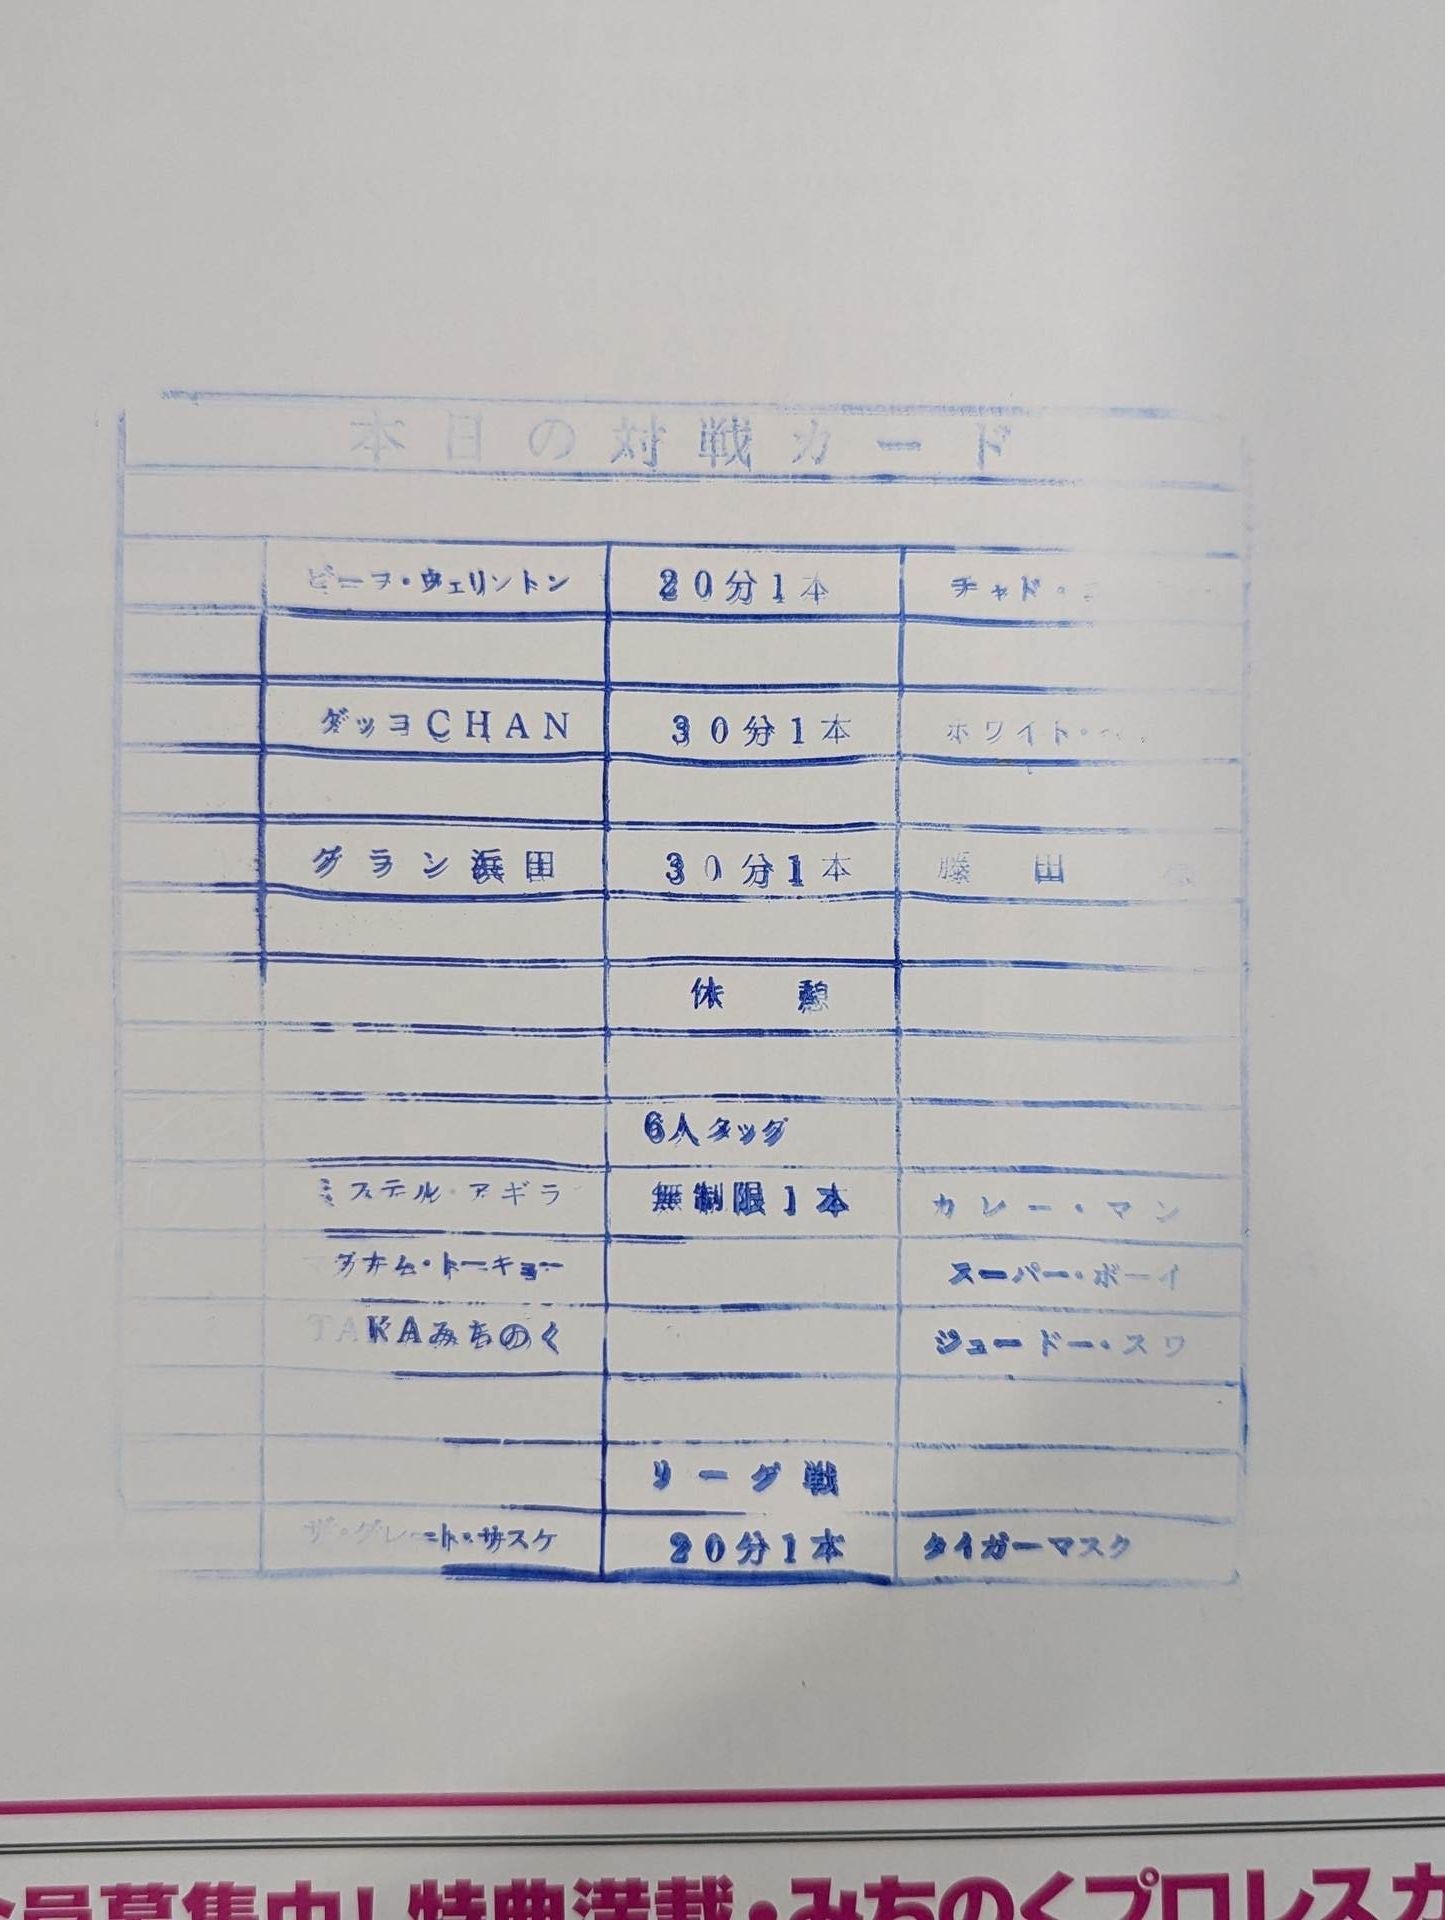 本日の対戦カード
ビーフ・ウェリントン 20分1本 チャド・
ダッヨCHAN 30分1本 ホワイト・
グラン浜田 30分1本 藤田
休憩
6人タッグ
ミステル・アギラ 無制限1本 カレー・マン
マグナム・トーキョー スーパー・ボーイ
TAKAみちのく ジュードー・スワ
リーグ戦
ザ・グレート・サスケ 20分1本 タイガーマスク
会員募集中!特典満載・みちのくプロレスカ